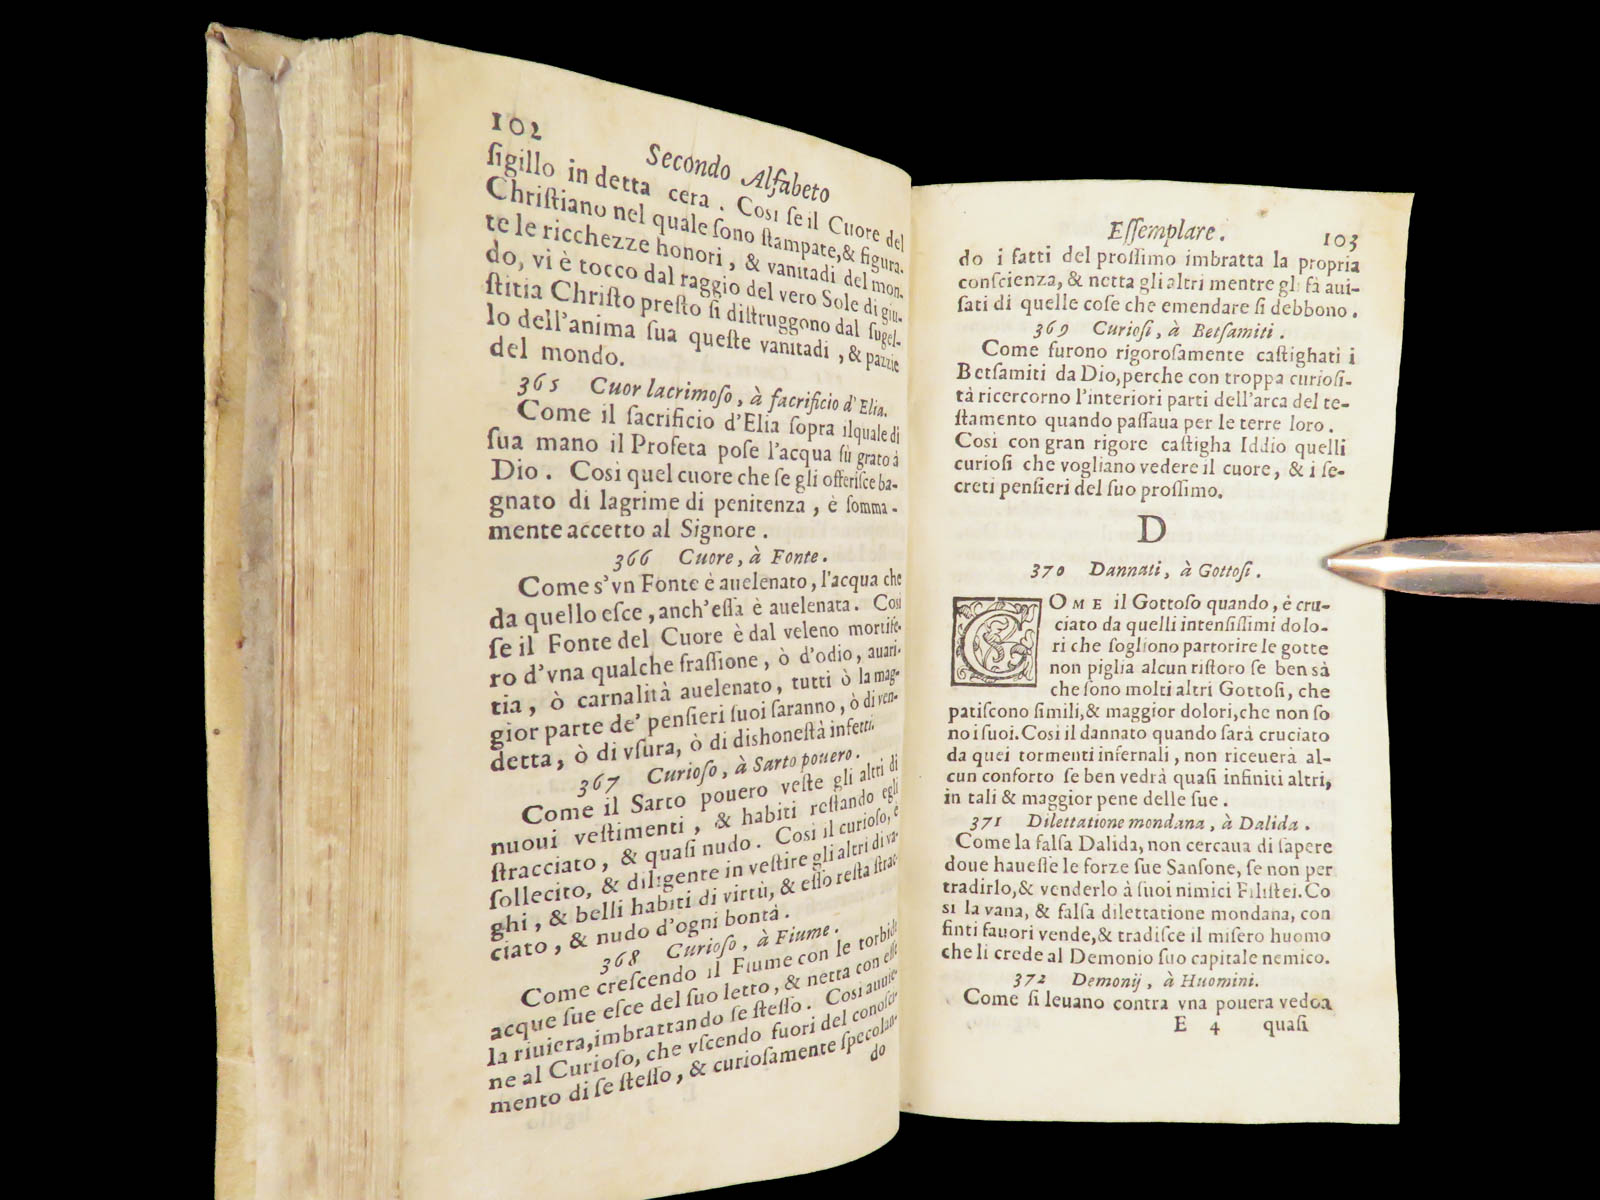 102
Secondo Alfabeto
ſigillo in detta cera . Così ſe il Cuore del
Chriſtiano nel quale ſono ſtampate,& figura-
te le ricchezze honori , & vanitadi del mon-
do, vi è tocco dal raggio del vero Sole di giu-
ſtitia Chriſto preſto ſi diſtruggono dal ſugel-
lo dell'anima ſua queſte vanitadi , & pazzie
del mondo.
365 Cuor lacrimoſo , à ſacrificio d'Elia.
Come il ſacrificio d'Elia ſopra ilquale di
ſua mano il Profeta poſe l'acqua fù grato à
Dio . Così quel cuore che ſe gli offeriſce ba-
gnato di lagrime di penitenza , è ſomma-
mente accetto al Signore .
366 Cuore, à Fonte .
Come s'vn Fonte è auelenato, l'acqua che
da quello eſce , anch'eſſa è auelenata. Così
ſe il Fonte del Cuore è dal veleno mortife-
ro d'vna qualche fraſſione , ò d'odio, auari-
tia , ò carnalità auelenato, tutti ò la mag-
gior parte de' penſieri ſuoi ſaranno , ò di ven-
detta, ò di vſura, ò di dishoneſtà infetti.
367 Curioſo, à Sarto pouero .
Come il Sarto pouero veſte gli altri di
nuoui veſtimenti , & habiti reſtando egli
ſtracciato , & quaſi nudo . Così il curioſo, è
ſollecito, & diligente in veſtire gli altri di va-
ghi , & belli habiti di virtù, & eſſo reſta ſtrac-
ciato , & nudo d'ogni bontà .
368 Curioſo , à Fiume .
Come creſcendo il Fiume con le torbide
acque ſue eſce del ſuo letto , & netta con eſſe
la riuiera, imbrattando ſe ſteſſo . Così auuie-
ne al Curioſo, che vſcendo fuori del conoſci-
mento di ſe ſteſſo , & curioſamente ſpecolan-
do
Eſſemplare . 103
do i fatti del proſſimo imbratta la propria
conſcienza, & netta gli altri mentre gli fà aui-
ſati di quelle coſe che emendare ſi debbono .
369 Curioſi , à Betſamiti .
Come furono rigoroſamente caſtighati i
Betſamiti da Dio, perche con troppa curioſi-
tà ricercorno l'interiori parti dell'arca del te-
ſtamento quando paſſaua per le terre loro .
Così con gran rigore caſtigha Iddio quelli
curioſi che vogliano vedere il cuore, & i ſe-
creti penſieri del ſuo proſſimo.
D
370 Dannati , à Gottoſi .
COME il Gottoſo quando , è cru-
ciato da quelli intenſiſſimi dolo-
ri che ſogliono partorire le gotte
non piglia alcun riſtoro ſe ben sà
che ſono molti altri Gottoſi, che
patiſcono ſimili,& maggior dolori, che non ſo
no i ſuoi. Così il dannato quando ſarà cruciato
da quei tormenti infernali , non riceuerà al-
cun conforto ſe ben vedrà quaſi infiniti altri,
in tali & maggior pene delle ſue .
371 Dilettatione mondana , à Dalida .
Come la falſa Dalida, non cercaua di ſapere
doue haueſſe le forze ſue Sanſone, ſe non per
tradirlo,& venderlo à ſuoi nimici Filiſtei. Co
sì la vana, & falſa dilettatione mondana, con
finti fauori vende,& tradiſce il miſero huomo
che li crede al Demonio ſuo capitale nemico.
372 Demonij , à Huomini.
Come ſi leuano contra vna pouera vedoa
E 4 quaſi